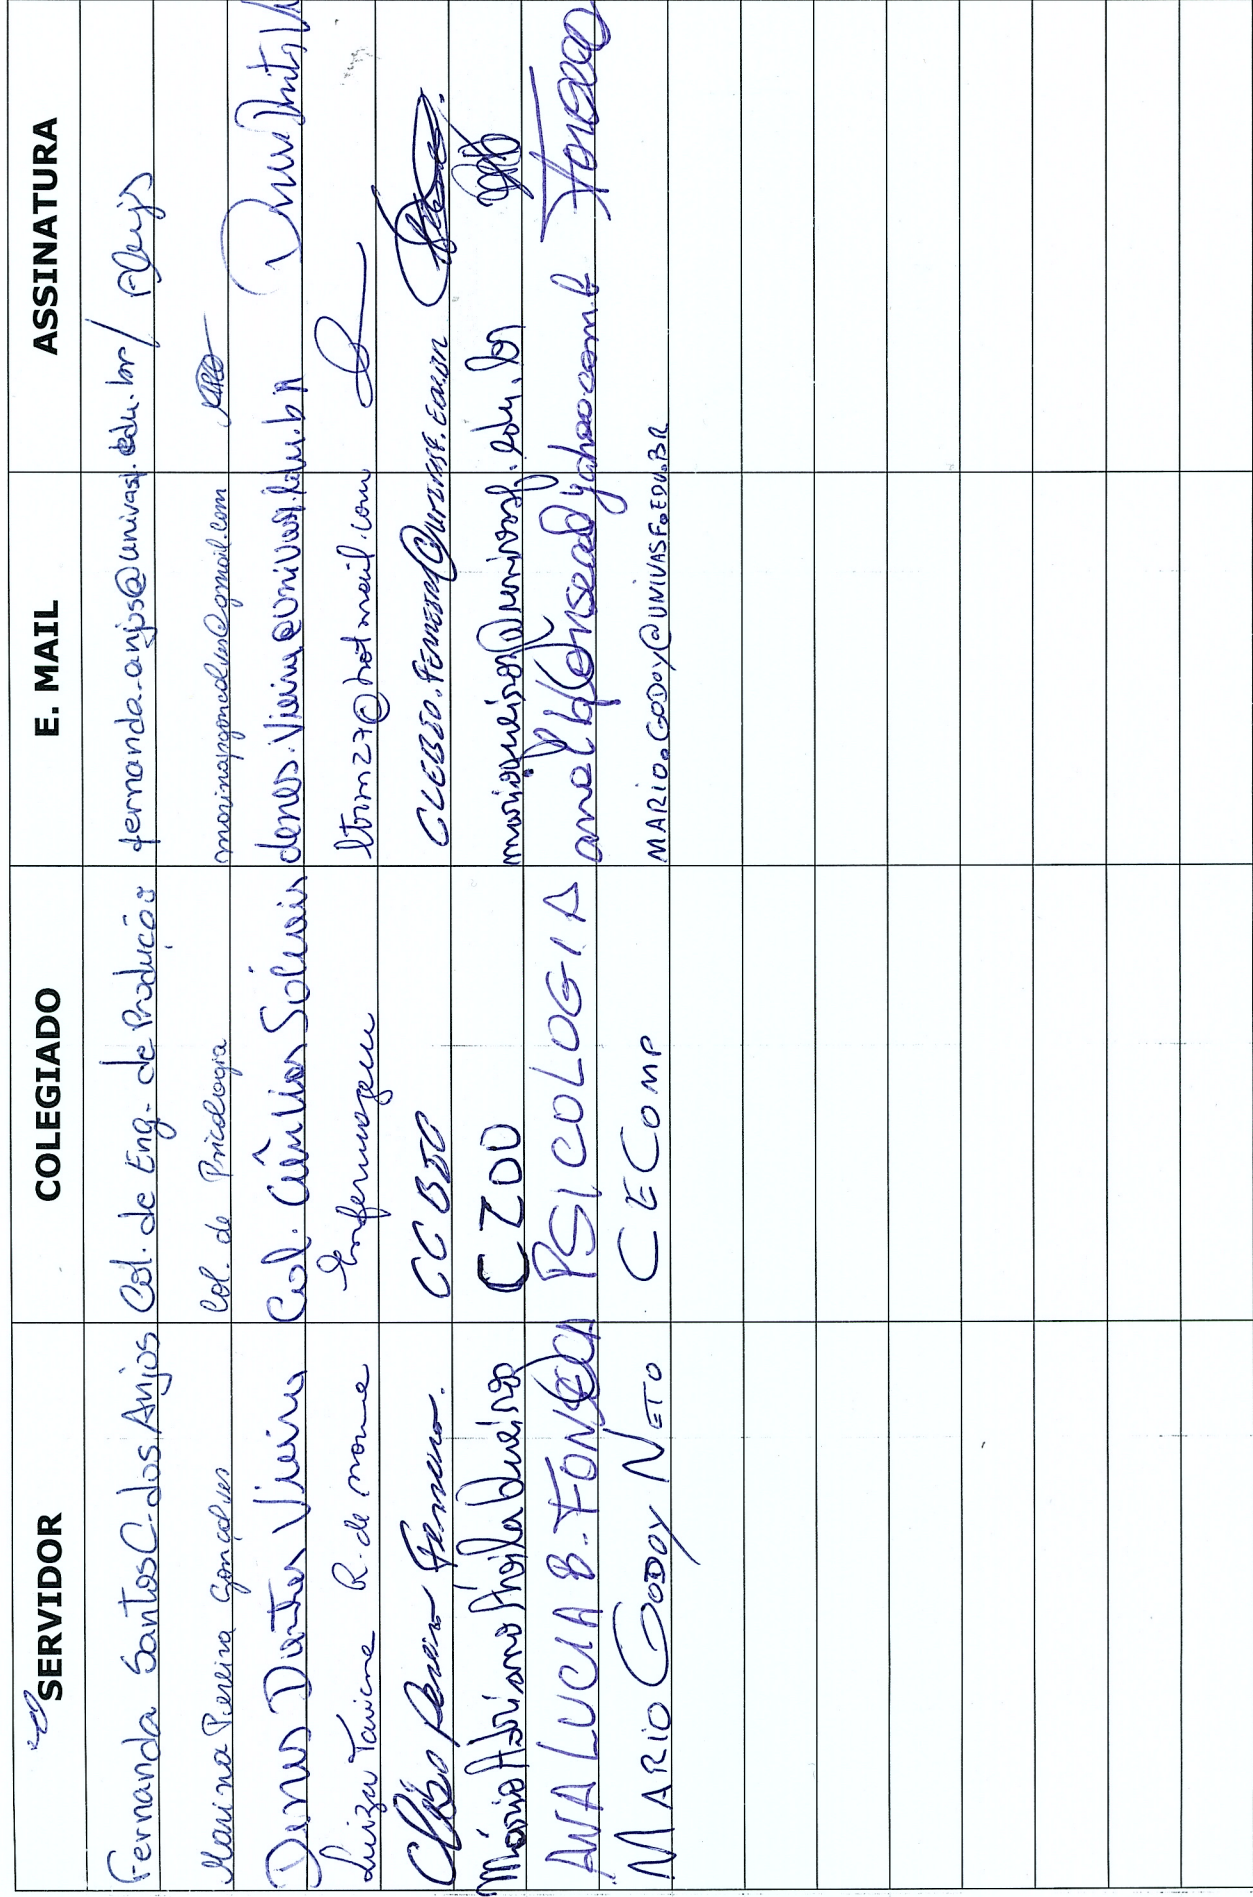 SERVIDOR COLEGIADO E. MAIL ASSINATURA
Fernanda Santos C. dos Anjos Col. de Eng. de Produção fernanda.anjos@univasf.edu.br/ FAnjos
Marina Pereira Gonçalves Col. de Psicologia marinapgoncalves@gmail.com
Denes Dantas Vieira Col. Ciências Sociais denes.vieira@univasf.edu.br
Luiza Taciana R. de Moura Enfermagem ltrm27@hotmail.com
Clébio Pereira Ferreira. CCBIO CLEBIO.FERREIRA@UNIVASF.EDU.BR
Mário Adriano Ávila Queiroz CZOO mario.queiroz@univasf.edu.br
ANA LUCIA B. FONSECA PSICOLOGIA analbfonseca@yahoo.com.br Fonseca
MARIO GODOY NETO CECOMP MARIO.GODOY@UNIVASF.EDU.BR